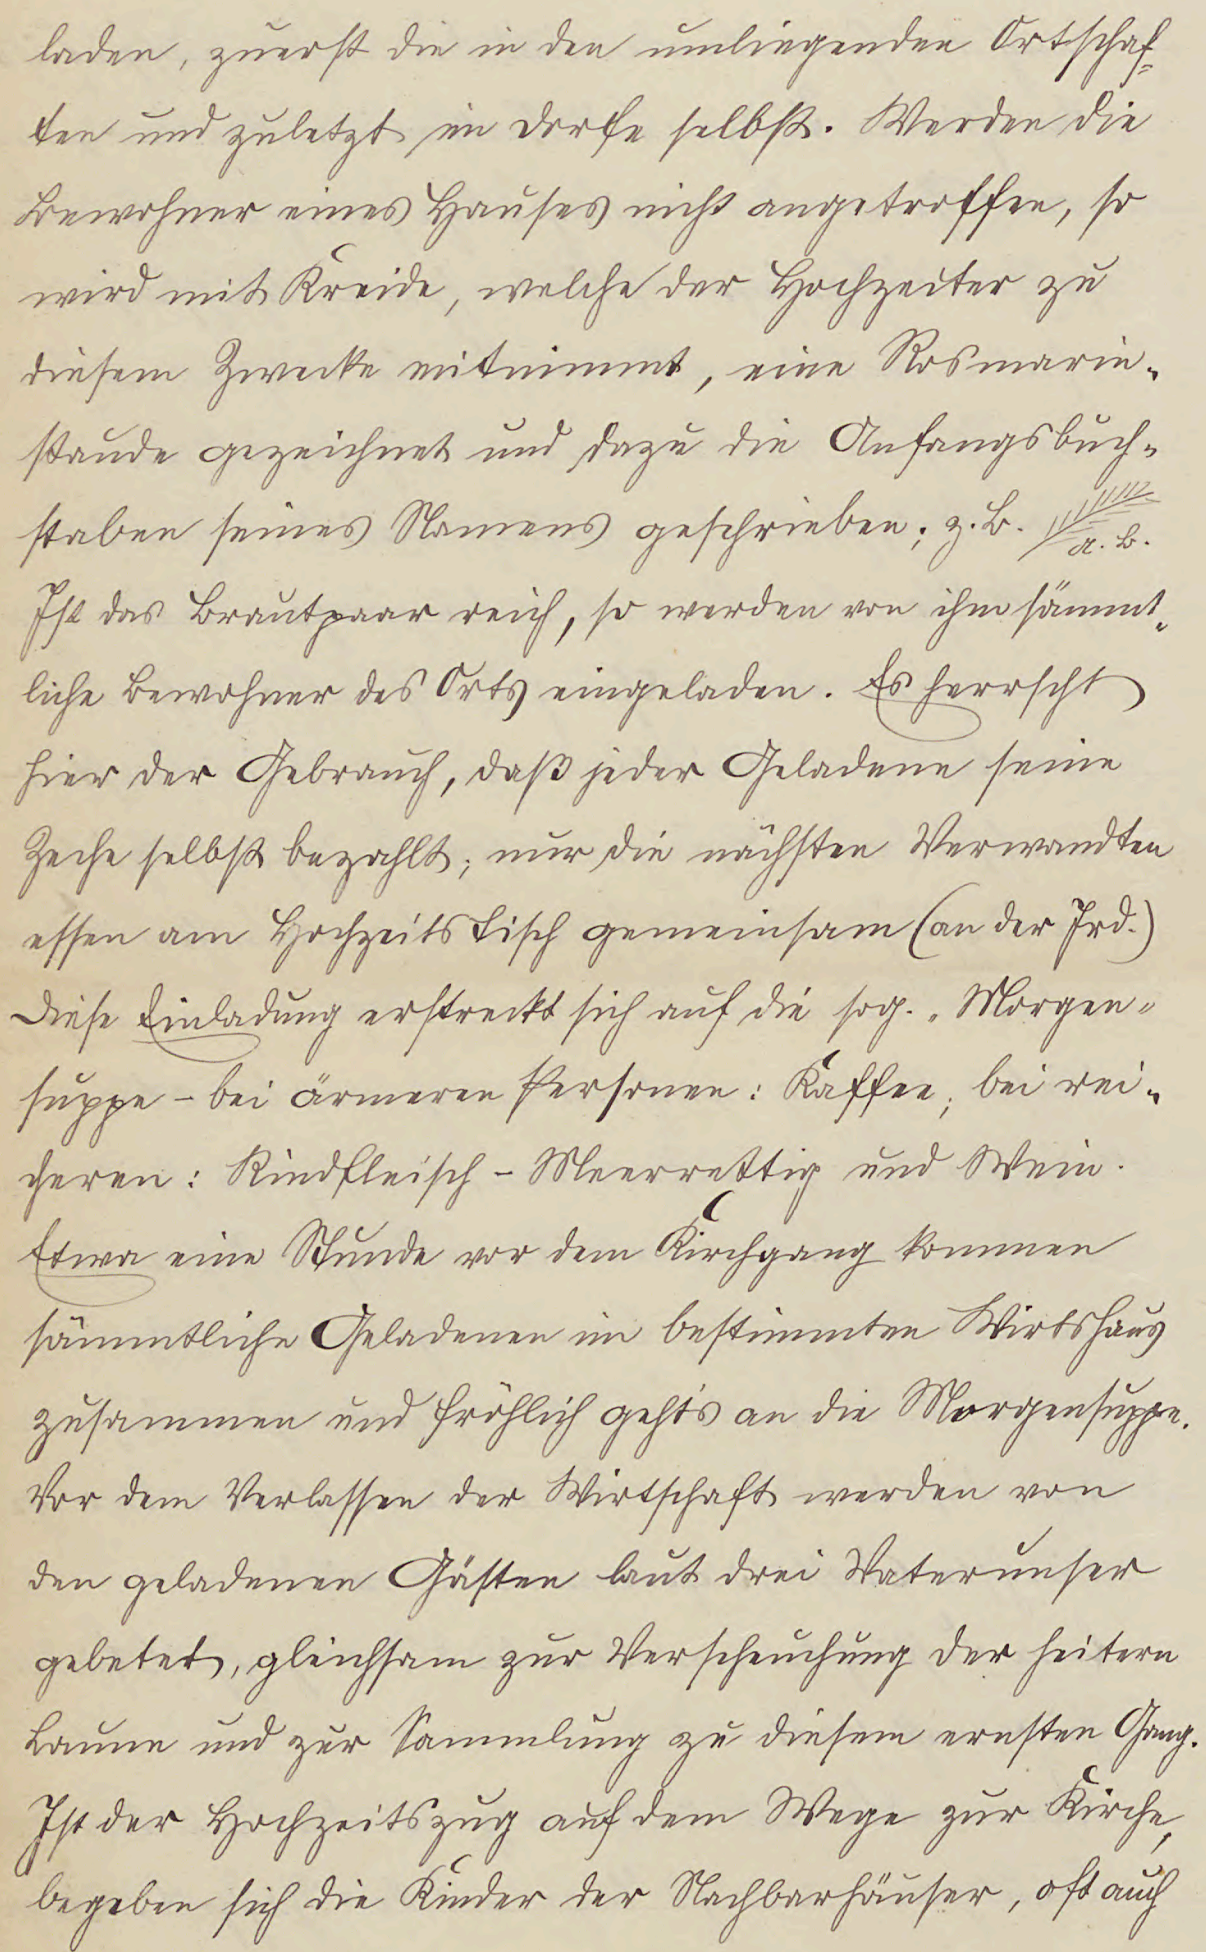 laden, zuerst die in den umliegenden Ortschaf-
ten und zuletzt im Dorfe selbst. Werden die
Bewohner eines Hauses nicht angetroffen, so
wird mit Kreide, welche der Hochzeiter zu
diesem Zwecke mitnimmt, eine Rosmarin-
staude gezeichnet und dazu die Anfangsbuch-
staben seines Namens geschrieben; z. B.
A. B.
Ist das Brautpaar reich, so werden von ihm sämmt-
liche Bewohner des Orts eingeladen. Es herrscht
hier der Gebrauch, daß jeder Geladene seine
Zeche selbst bezahlt; nur die nächsten Verwandten
essen am Hochzeitstisch gemeinsam (an der Ird.)
Diese Einladung erstreckt sich auf die sog. „Morgen-
suppe – bei ärmeren Personen: Kaffee; bei rei-
cheren: Rindfleisch – Meerrettig und Wein.
Etwa eine Stunde vor dem Kirchgang kommen
sämmtliche Geladenen im bestimmten Wirtshaus
zusammen und fröhlich geht's an die Morgensuppe.
Vor dem Verlassen der Wirtschaft werden von
den geladenen Gästen laut drei Vaterunser
gebetet, gleichsam zur Verscheuchung der heitern
Laune und zur Sammlung zu diesem ernsten Gang.
Ist der Hochzeitszug auf dem Wege zur Kirche,
begeben sich die Kinder der Nachbarhäuser, oft auch